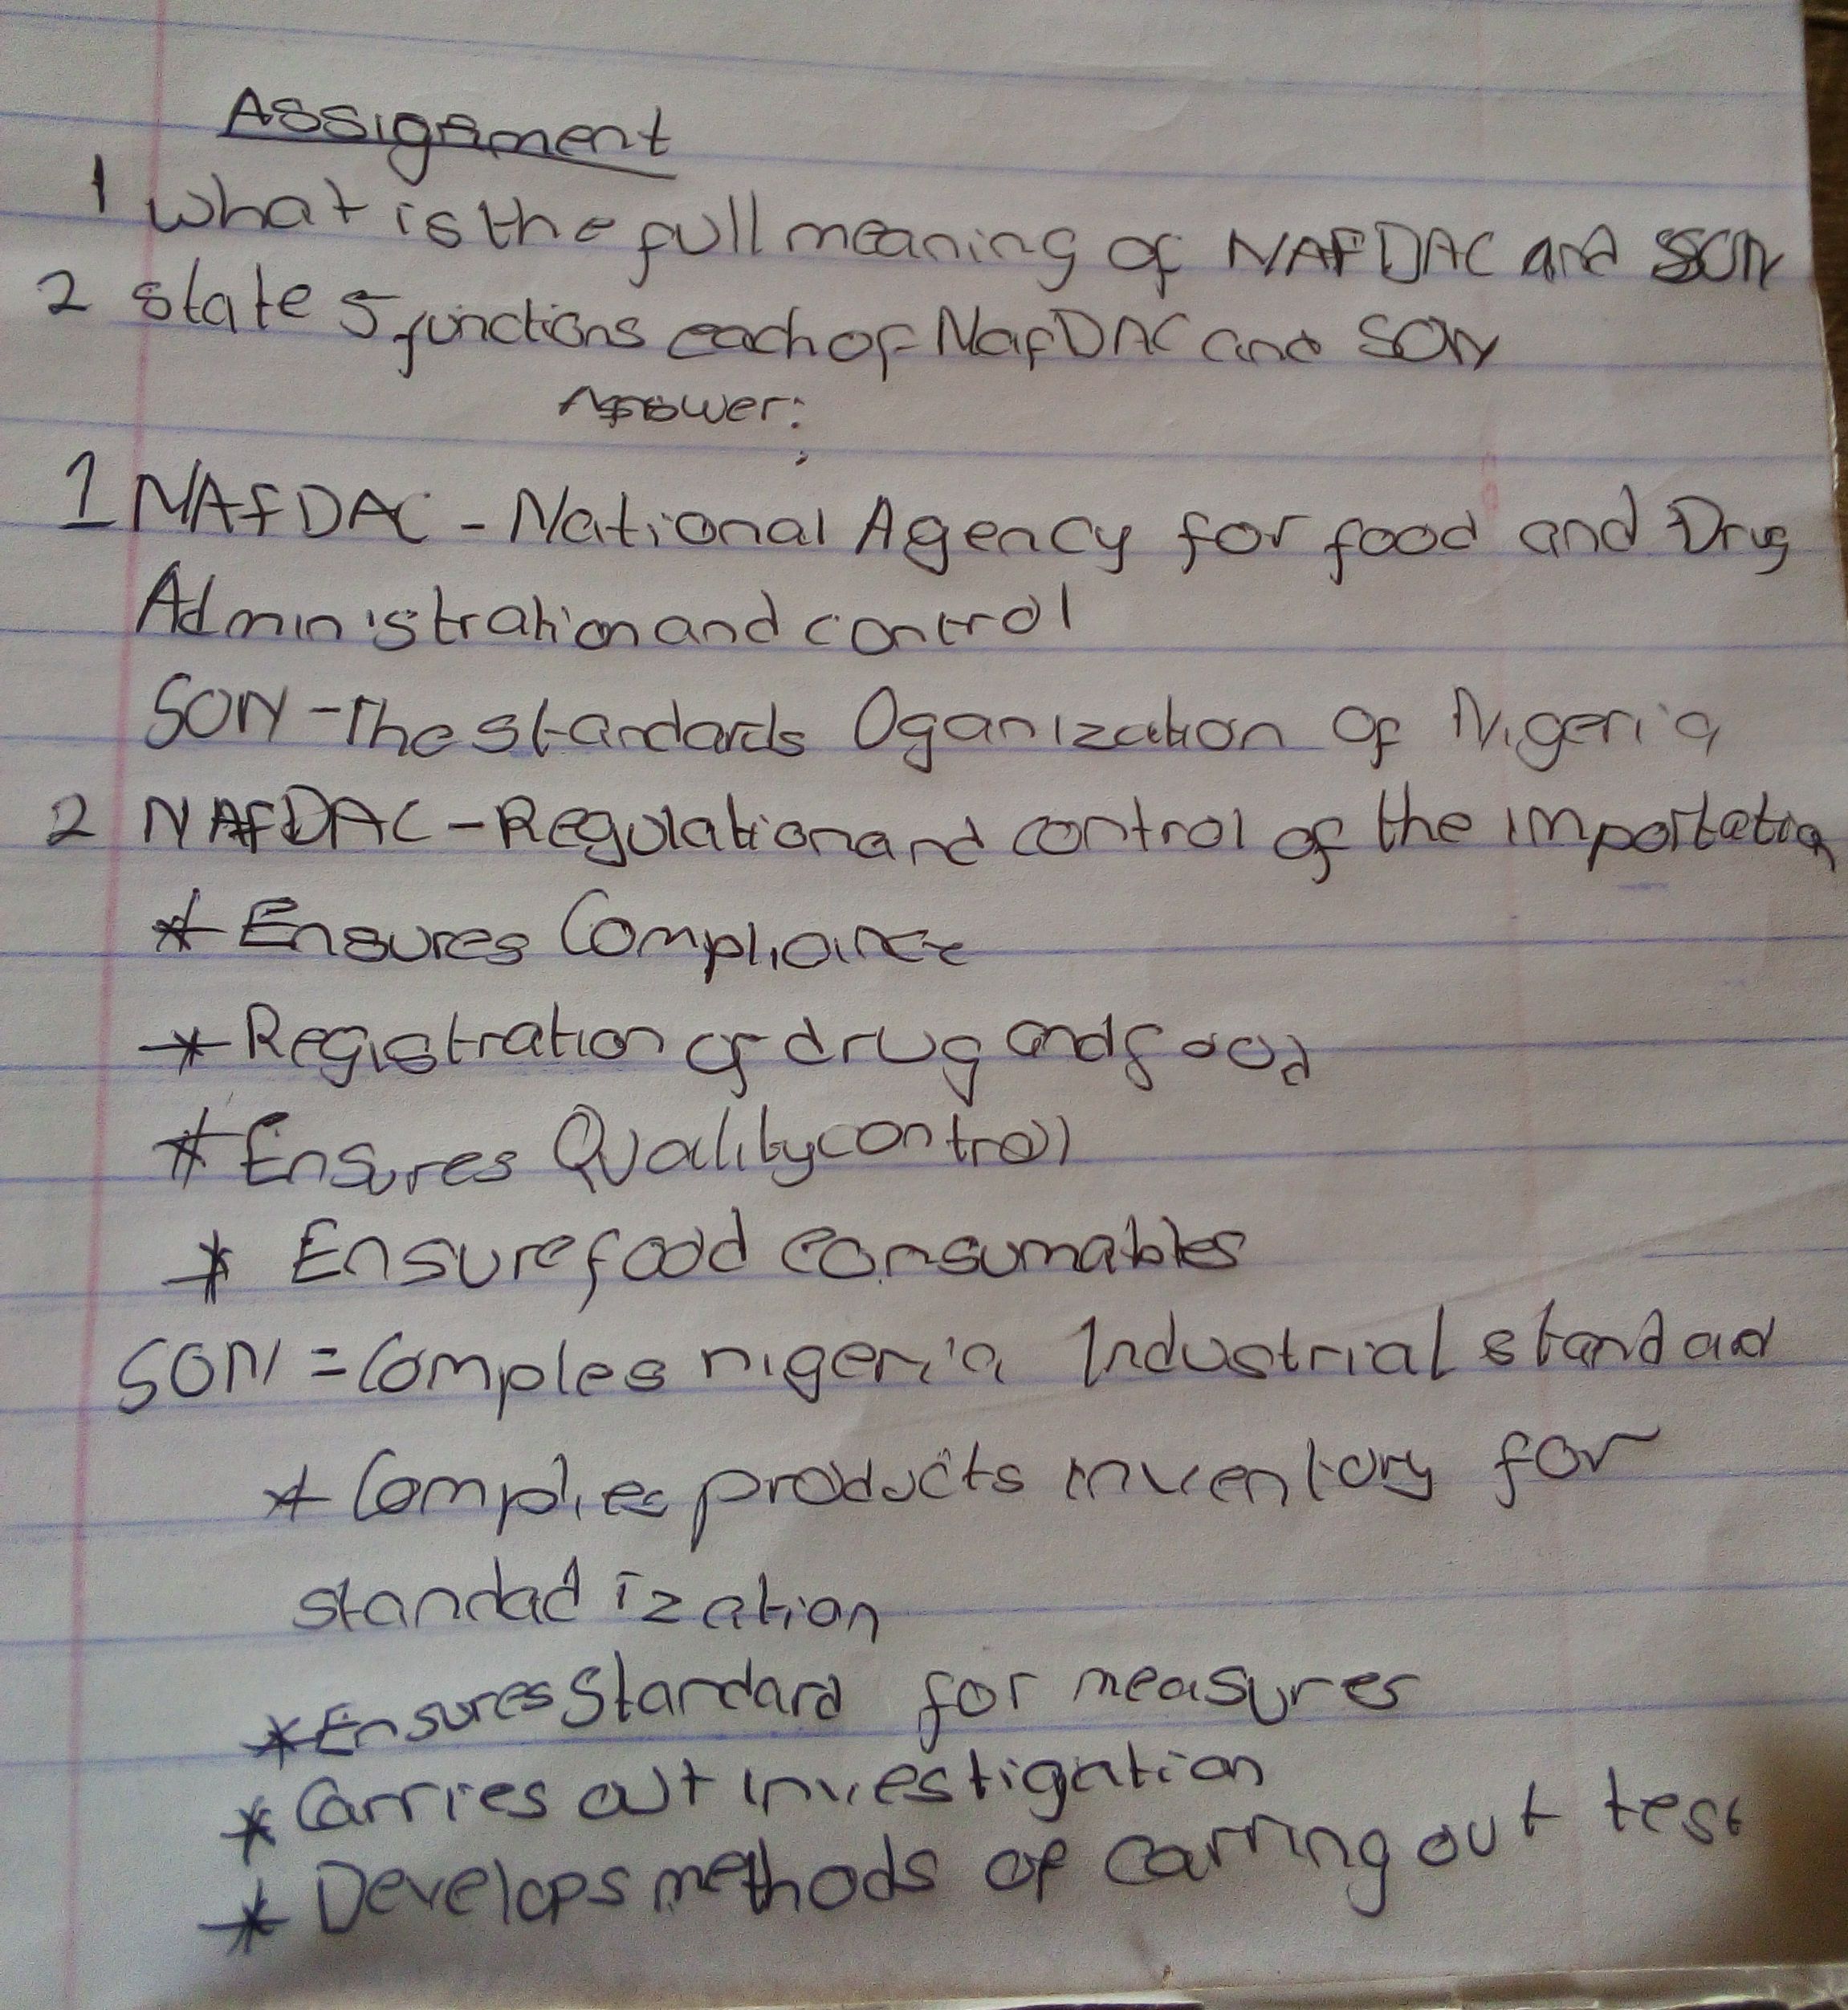 Assignment
1 What is the full meaning of NAFDAC and SON
2 state 5 functions each of NafDAC and SON
Answer:
1 NAfDAC - National Agency for food and Drug
Administration and control
SON - The standards Oganization of Nigeria
2 NAfDAC - Regulation and control of the importation
* Ensures Compliance
* Registration of drug and food
* Ensures Quality control
* Ensure food consumables
SON = Comples nigeria Industrial standad
* Complies products inventory for
standadization
* Ensures Standard for measures
* Carries out investigation
* Develops methods of carring out test